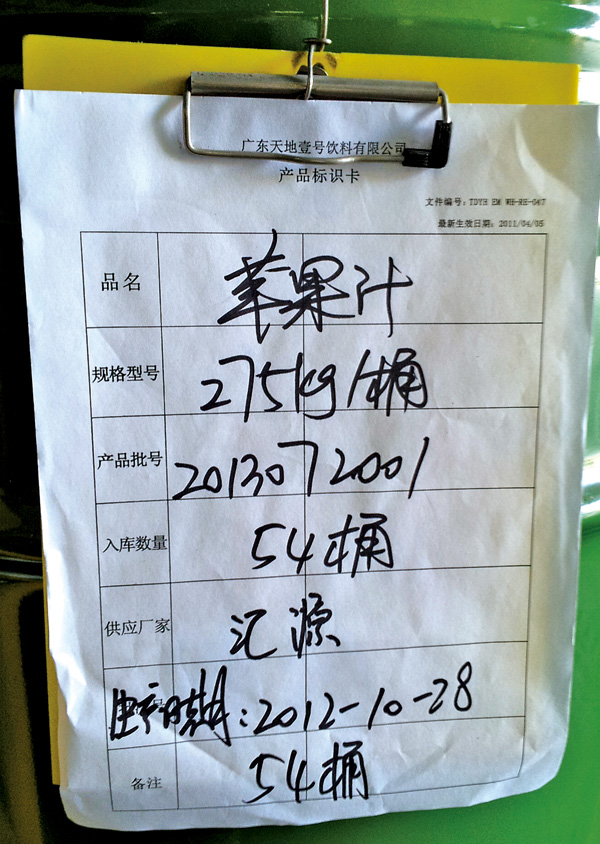 广东天地壹号饮料有限公司
产品标识卡
文件编号：TDYH EM WH-RH-047
最新生效日期：2011/04/05
品名 苹果汁
规格型号 275kg/桶
产品批号 2013072001
入库数量 54桶
供应厂家 汇源
生产日期：2012-10-28
备注 54桶